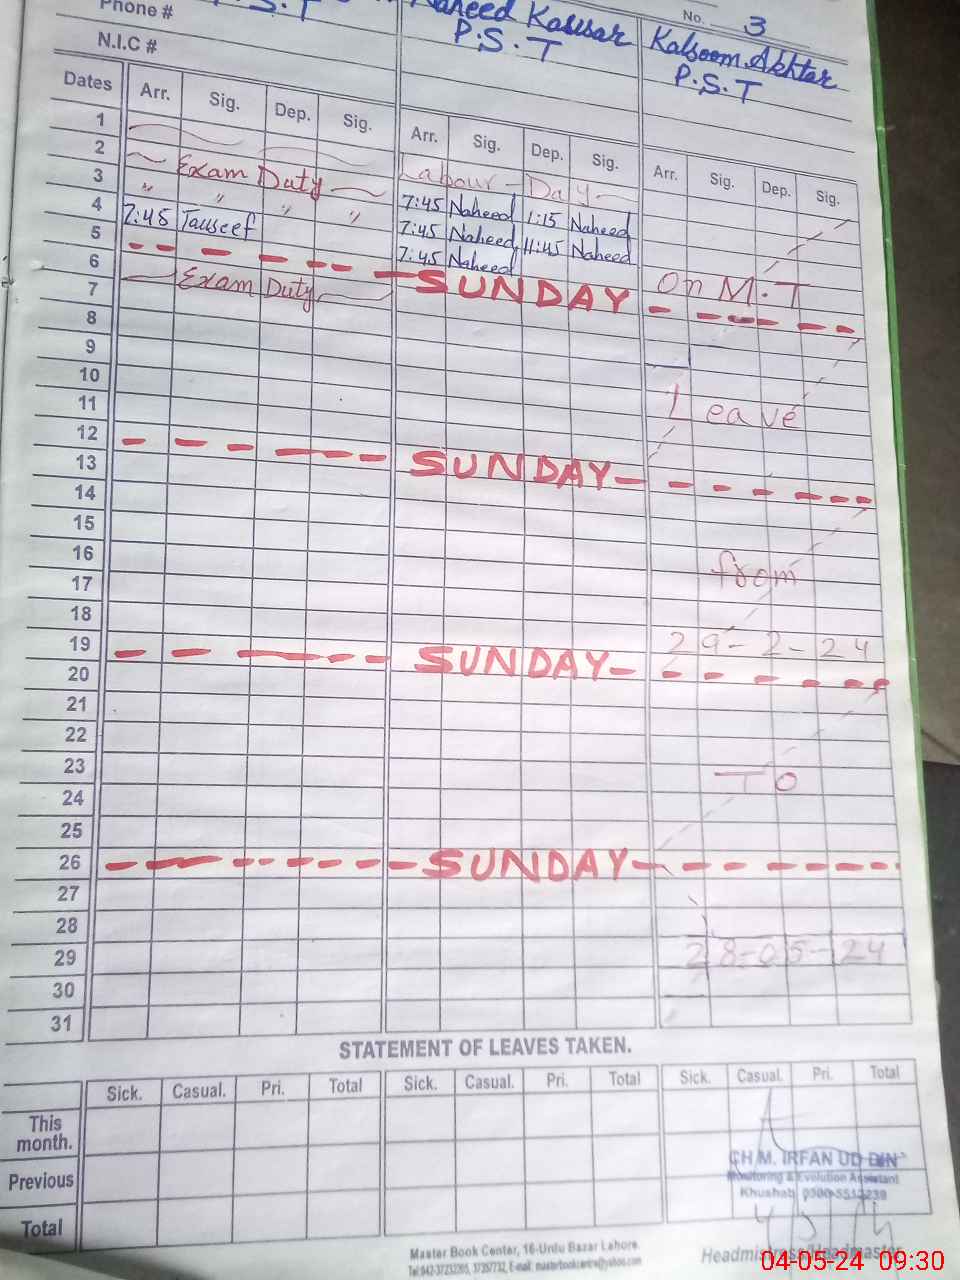 Phone #
P.S.T
Naheed Kausar
P.S.T
No. 3
Kalsoom Akhtar
P.S.T
N.I.C #
Dates Arr. Sig. Dep. Sig. Arr. Sig. Dep. Sig. Arr. Sig. Dep. Sig.
1 Labour - Day -
2 Exam Duty 7:45 Naheed 1:15 Naheed
3 " " " " 7:45 Naheed 11:45 Naheed
4 7:45 Tauseef 7:45 Naheed
5 SUNDAY
6 Exam Duty
On M.T
7
8
9
10
11
Leave
12 SUNDAY
13
14
15
16
17
from
18
19 SUNDAY
29-2-24
20
21
22
23
To
24
25
26 SUNDAY
27
28
29
28-05-24
30
31
STATEMENT OF LEAVES TAKEN.
Sick. Casual. Pri. Total Sick. Casual. Pri. Total Sick. Casual. Pri. Total
This month.
Previous
Total
CH M. IRFAN UD DIN
Monitoring & Evolution Assistant
Khushab 0300-5513239
Master Book Center, 16-Urdu Bazar Lahore.
Headmistress/Headmaster
04-05-24 09:30